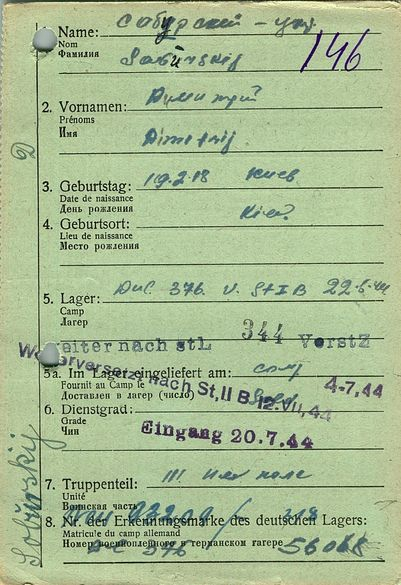 1. Name: Сабурский - укр
Nom
Фамилия
146
2. Vornamen: Дмитрий
Prénoms
Имя
Dimitrij
3. Geburtstag: 19.2.18 Киев
Date de naissance
День рождения
4. Geburtsort: Kiew
Lieu de naissance
Место рождения
5. Lager: Dul. 376 v. St I B 22-6-44
Camp
Лагерь
Weiter nach StL 344 VorstZ
Weiterversetzt nach St. II B 12. VII. 44
5a. Im Lager eingeliefert am:
Fournit au Camp le 4-7.44
Доставлен в лагерь (число)
6. Dienstgrad: Sold
Grade
Чин
Eingang 20.7.44
7. Truppenteil: III
Unité
Воинская часть
8. Nr. der Erkennungsmarke des deutschen Lagers:
Matricule du camp allemand
Номер военнопленного в германском лагере
376 56068